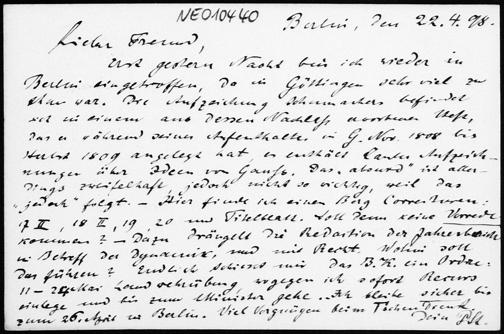 NEO10440
Berlin, den 22.4.98.
Lieber Freund,
Erst gestern Nacht bin ich wieder in
Berlin eingetroffen, da in Göttingen sehr viel zu
thun war. Die Aufzeichnung Schumachers befindet
sich in einem aus dessen Nachlass Hefte,
das er während seines Aufenthaltes in G. Nov. 1808 bis
Herbst 1809 angelegt hat, es enthält lauter Aufzeich-
nungen über Ideen von Gauß. Das „absurd" ist aller-
dings zweifelhaft, jedoch nicht so wichtig, weil das
„jedoch" folgt. — Hier finde ich einen Berg Correcturen:
17 II, 18 II, 19, 20 und Titelblatt. Soll denn keine Vorrede
kommen? — Dazu drängelt die Redaction der Jahresberichte
in Betreff der Dynamik, und mit Recht. Wohin soll
das führen? Endlich schickt mir das B.K. ein
11- Landwehrübung, wogegen ich sofort Recurs
einlege und bis zum Minister gehe. Ich bleibe sicher bis
zum 26. April in Berlin. Viel Vergnügen beim
Dein